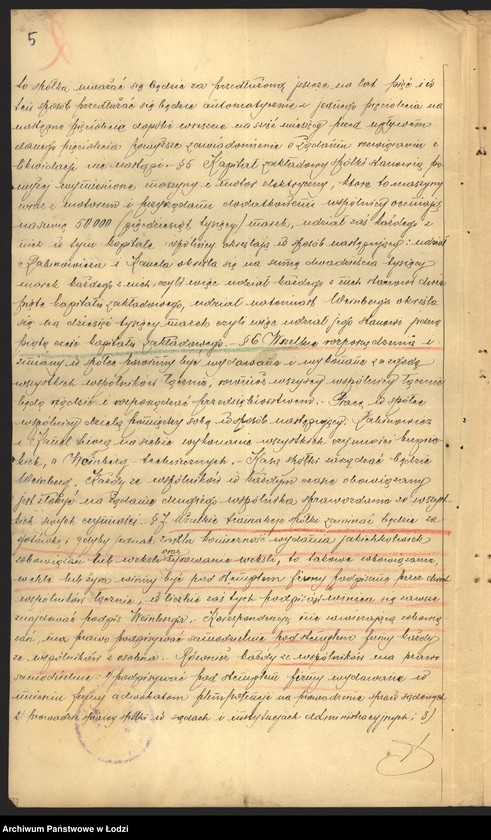 5
to spółka uważać się będzie za przedłużoną jeszcze na lat pięć i w
ten sposób przedłużać się będzie automatycznie z jednego pięciolecia na
następne pięciolecia dopóki wreszcie na sześć miesięcy przed upływem
danego pięciolecia powyższe zawiadomienie o żądaniu rozwiązania i
likwidacji nie nastąpi. - §5 Kapitał zakładowy spółki stanowią po
wyżej wymienione maszyny i motor elektryczny, które to maszyny
wraz z motorem i przyrządami dodatkowemi wspólnicy oceniają
na sumę 50000 /pięćdziesiąt tysięcy/ marek, udział zaś każdego z
nich w tym kapitale spólnicy określają w sposób następujący: udział
Kalinowicza i Kancla określa się na sumę dwadzieścia tysięcy
marek każdego z nich, czyli więc udział każdego z nich stanowi dwie
piąte kapitału zakładowego, udział natomiast Weinberga określa
się na dziesięć tysięcy marek czyli więc udział jego stanowi jedną
piątą część kapitału zakładowego. - §6 Wszelkie rozporządzenia i
zmiany w spółce powinny być wydawane i wykonane za zgodą
wszystkich wspólników łącznie, również wszyscy wspólnicy łącznie
będą rządzić i rozporządzać przedsiębiorstwem. - Pracę w spółce
wspólnicy dzielą pomiędzy sobą w sposób następujący:
i Kancl biorą na siebie wykonanie wszystkich czynności
a Weinberg technicznych. - Kasą spółki zarządzać będzie
Weinberg. Każdy ze wspólników w każdym czasie obowiązany
jest złożyć na żądanie drugiego wspólnika sprawozdanie ze wszyst
kich swych czynności. §7 Wszelkie tranzakcje spółki zawierać będzie za
gotówkę, gdyby jednak zaszła konieczność wydania jakichkolwiek
zobowiązań lub weksli oraz żyrowania weksli, to takowe zobowiązania,
weksle lub żyra winny być pod stemplem firmy podpisane przez dwóch
wspólników łącznie, w liczbie zaś tych podpisów winien się zawsze
znajdować podpis Weinberga. Korespondencję nie zawierającą zobowią
zań, ma prawo podpisywać samodzielnie pod stemplem firmy każdy
ze wspólników z osobna. - Również każdy ze wspólników ma prawo
samodzielnie: 1/ podpisywać pod stemplem firmy wydawane w
imieniu firmy adwokatom plenipotencje na prowadzenie spraw sądowych
2/ prowadzić sprawy spółki w sądach i instytucjach administracyjnych; 3/
Archiwum Państwowe w Łodzi